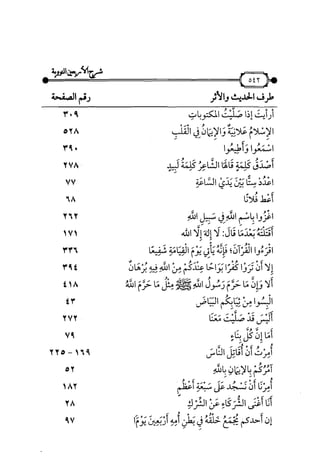 شرح الأربعين النووية
٥٤٢
طرف الحديث والأثر رقم الصفحة
أرأيتَ إذا صَلَّيْتُ المكتوباتِ ٣٠٩
الإسْلامُ عَلَانِيَةٌ وَالإِيمَانُ فِي القَلْبِ ٥٢٨
اسْمَعُوا وَأَطِيعُوا ٣٩٠
أَصْدَقُ كَلِمَةٍ قَالَهَا الشَّاعِرُ كَلِمَةُ لَبِيدٍ ٢٧٨
اعْدُدْ سِتًّا بَيْنَ يَدَيِ السَّاعَةِ ٧٧
أَعْطِ فُلَانًا ٦٨
اغْزُوا بِاسْمِ اللَّهِ فِي سَبِيلِ اللَّهِ ٢٦٢
أَقَتَلْتَهُ بَعْدَمَا قَالَ: لَا إِلَهَ إِلَّا الله ١٧١
اقْرَءُوا القُرْآنَ؛ فَإِنَّهُ يَأْتِي يَوْمَ القِيَامَةِ شَفِيعًا ٣٣٦
إِلَّا أَنْ تَرَوْا كُفْرًا بَوَاحًا عِنْدَكُمْ مِنَ اللَّهِ فِيهِ بُرْهَانٌ ٣٩٤
أَلَا وَإِنَّ مَا حَرَّمَ رَسُولُ اللَّهِ ﷺ مِثْلُ مَا حَرَّمَ اللَّهُ ٤١٨
الْبَسُوا مِنْ ثِيَابِكُم البَيَاضَ ٤٣
أَلَيْسَ قَدْ صَلَّيْتَ مَعَنَا ٢٧٢
أَمَا إِنَّ كُلَّ بِنَاءٍ ٧٩
أُمِرْتُ أَنْ أُقَاتِلَ النَّاسَ ١٦٩ - ٢٢٥
آمُرُكُمْ بِالإِيمَانِ بِاللَّهِ ٥٢
أُمِرْنَا أَنْ نَسْجُدَ عَلَى سَبْعَةِ أَعْظُمٍ ١٨٢
أَنَا أَغْنَى الشُّرَكَاءِ عَنِ الشِّرْكِ ٢٨
إن أحدكم يُجْمَعُ خَلْقُهُ فِي بَطْنِ أُمِّهِ أَرْبَعِينَ يَوْمًا ٩٧